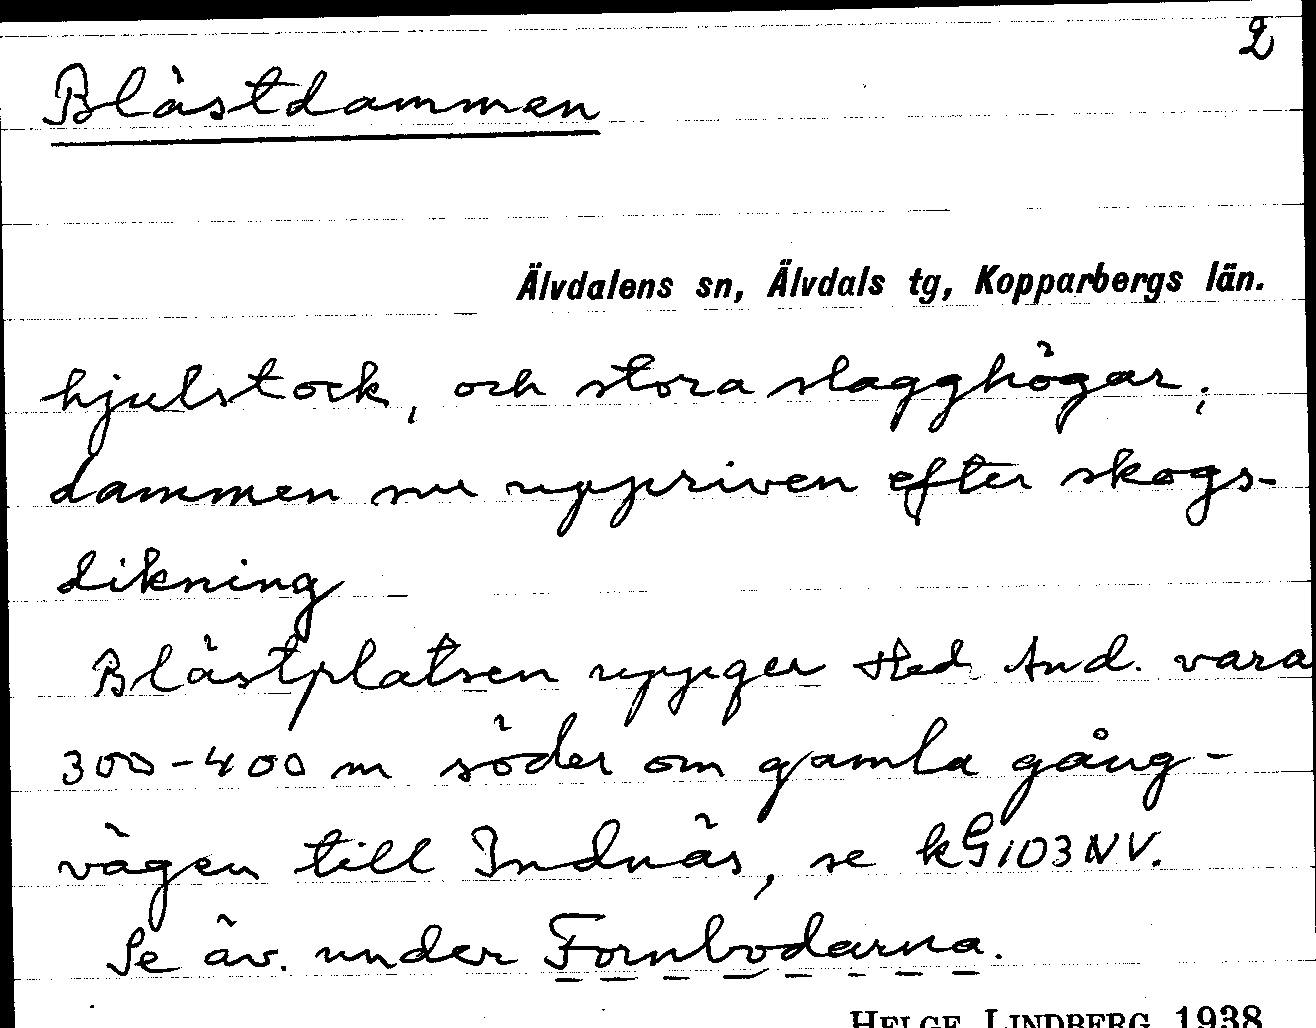 2
Blästdammen
Älvdalens sn, Älvdals tg, Kopparbergs län.
hjulstock, och stora slagghögar;
dammen nu uppriven efter skogs-
dikning
Blästplatsen uppger Hed And. vara
300-400 m söder om gamla gång-
vägen till Indnäs, se kG103NV.
Se äv. under Fornbodarna.
HELGE LINDBERG 1938